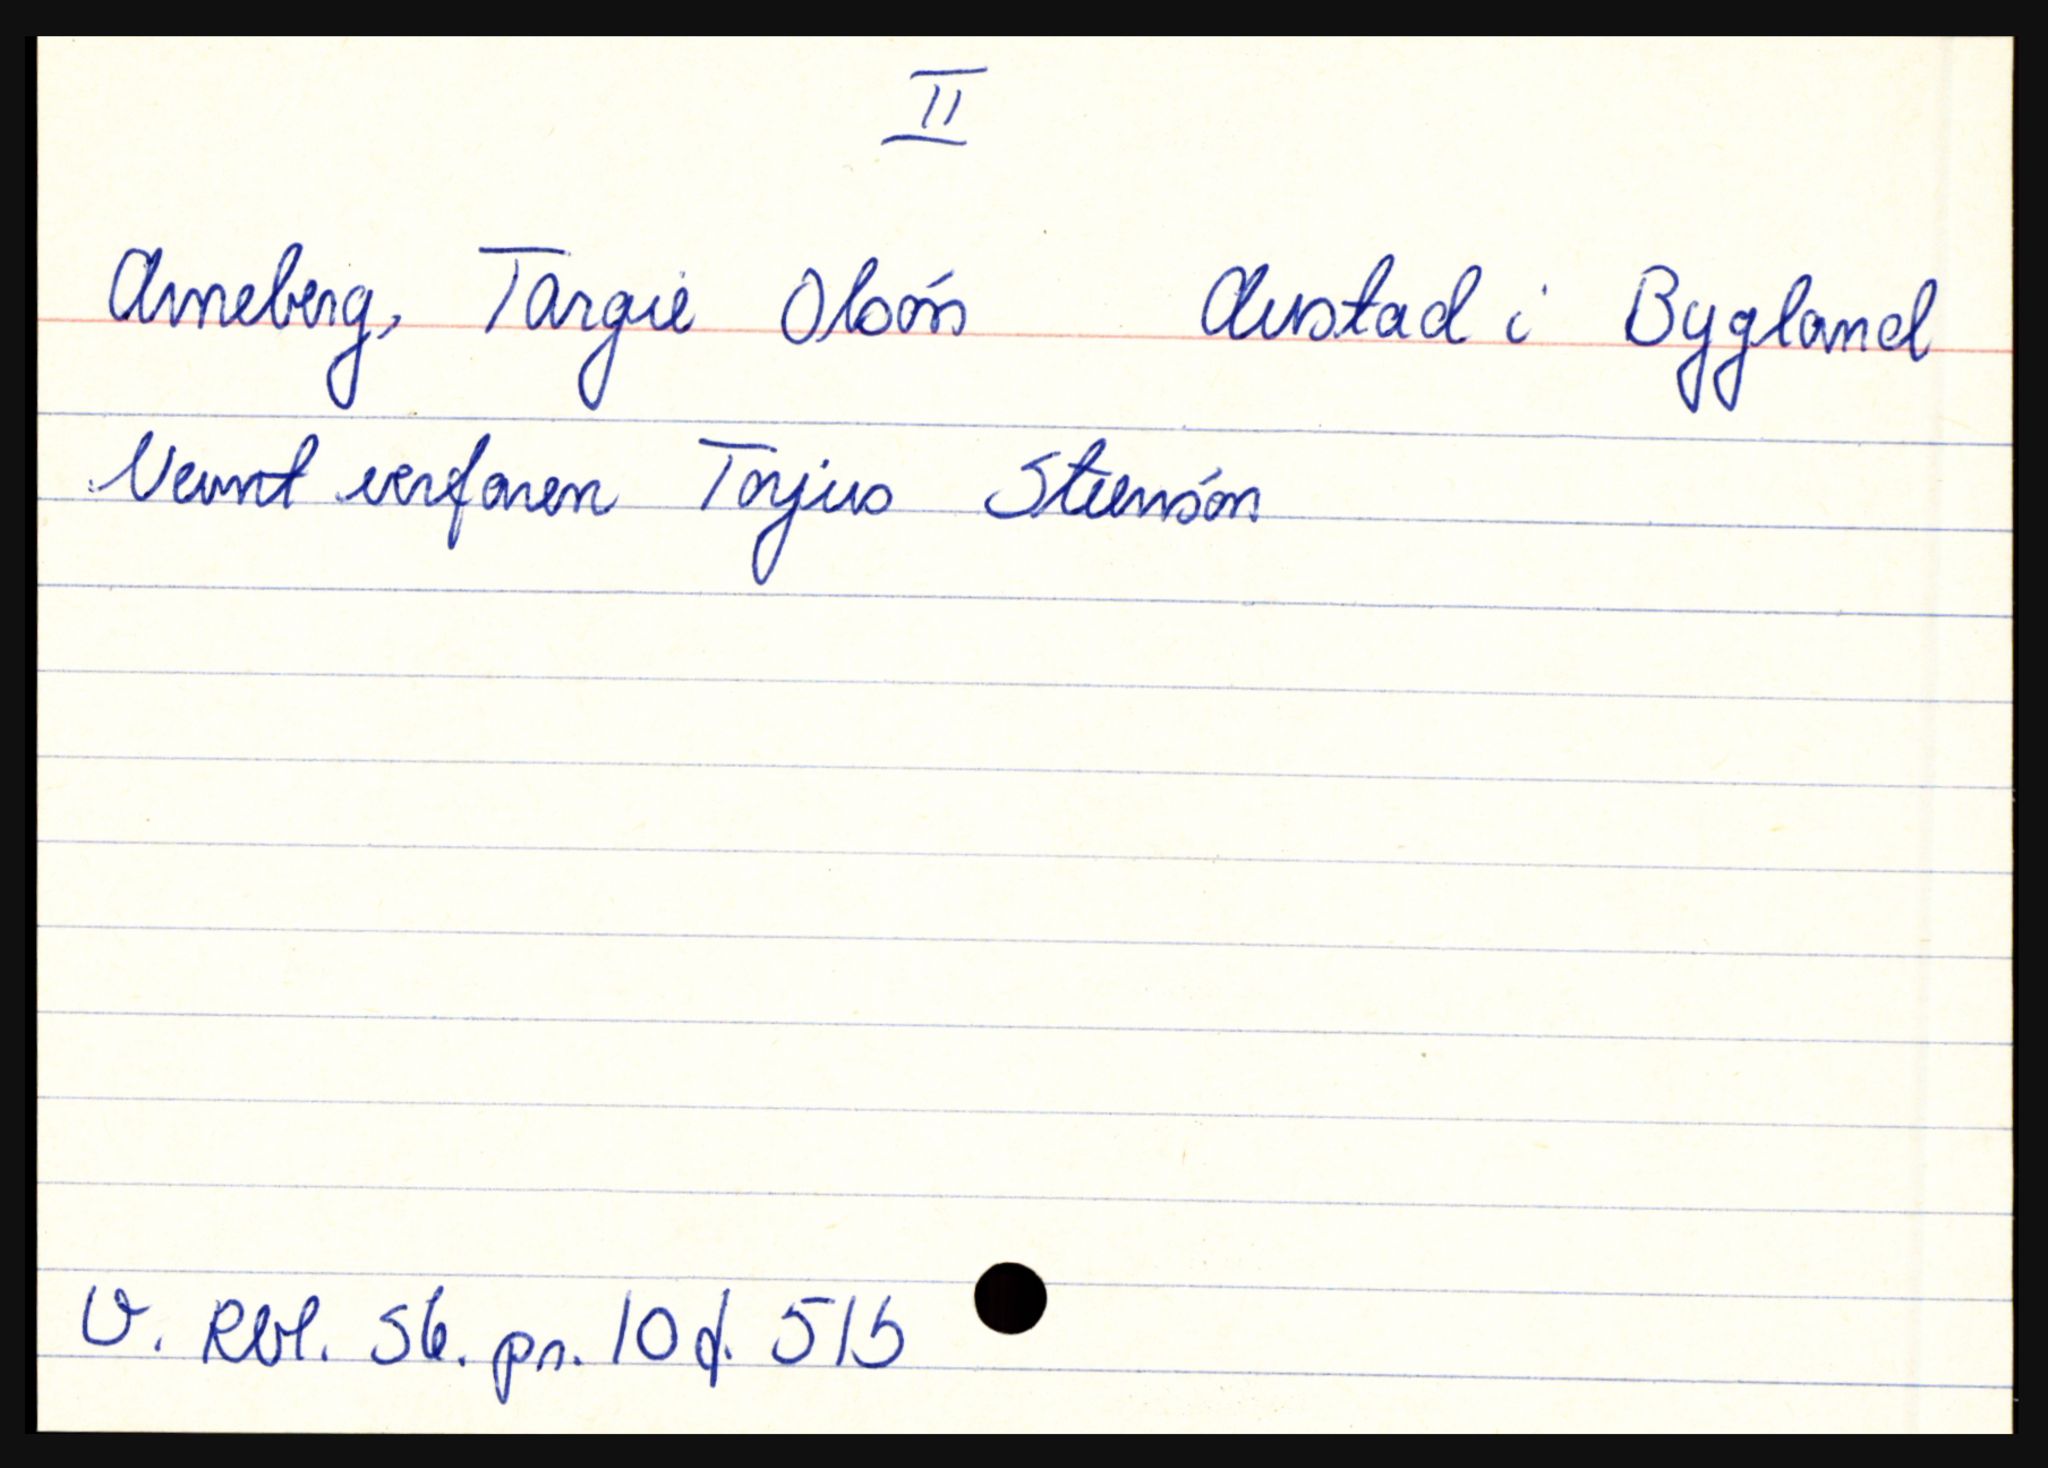 II
Arneberg, Targie Olsøn Austad i Bygland
Nevnt verfaren Torjus Steensøn
V. Rbl. 56. pn. 10 f. 51b